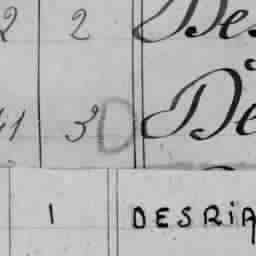 2 2 Des
41 3 D De
1 DESRIA